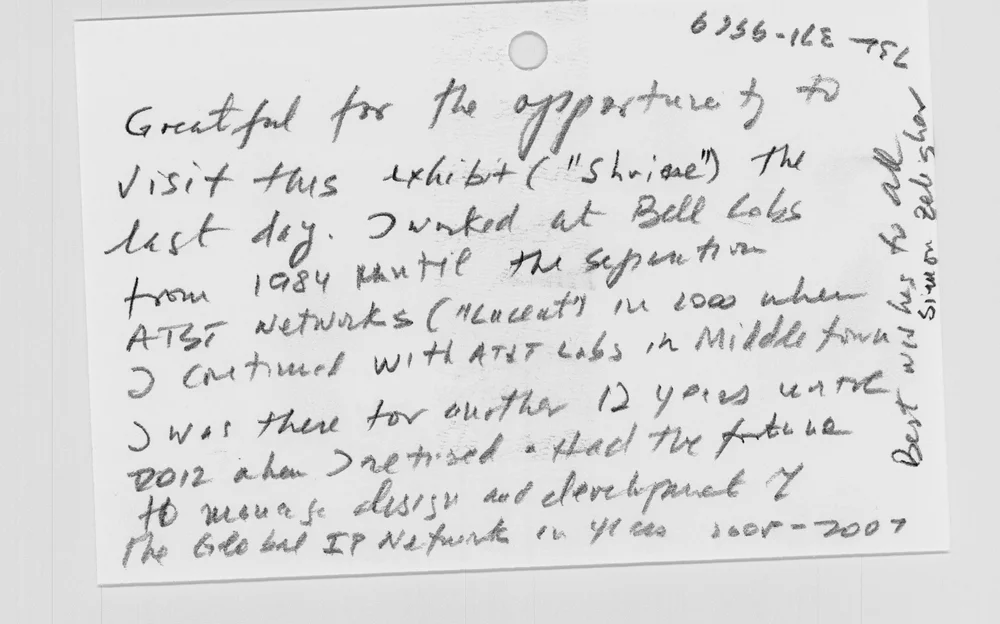 Greatful for the opportunity to
visit this exhibit ("Shrine") the
last day. I worked at Bell Labs
from 1984 until the separation
AT&T Networks ("Lucent") in 2000 when
I continued with AT&T Labs in Middletown
I was there for another 12 years until
2012 when I retired. Had the fortune
to manage design and development of
the Global IP Network in years 2005-2007
Best wishes to all
Simon Zelingher